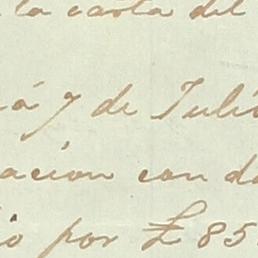 la carta del
á 7 de Julio
acion con d
io por £ 85